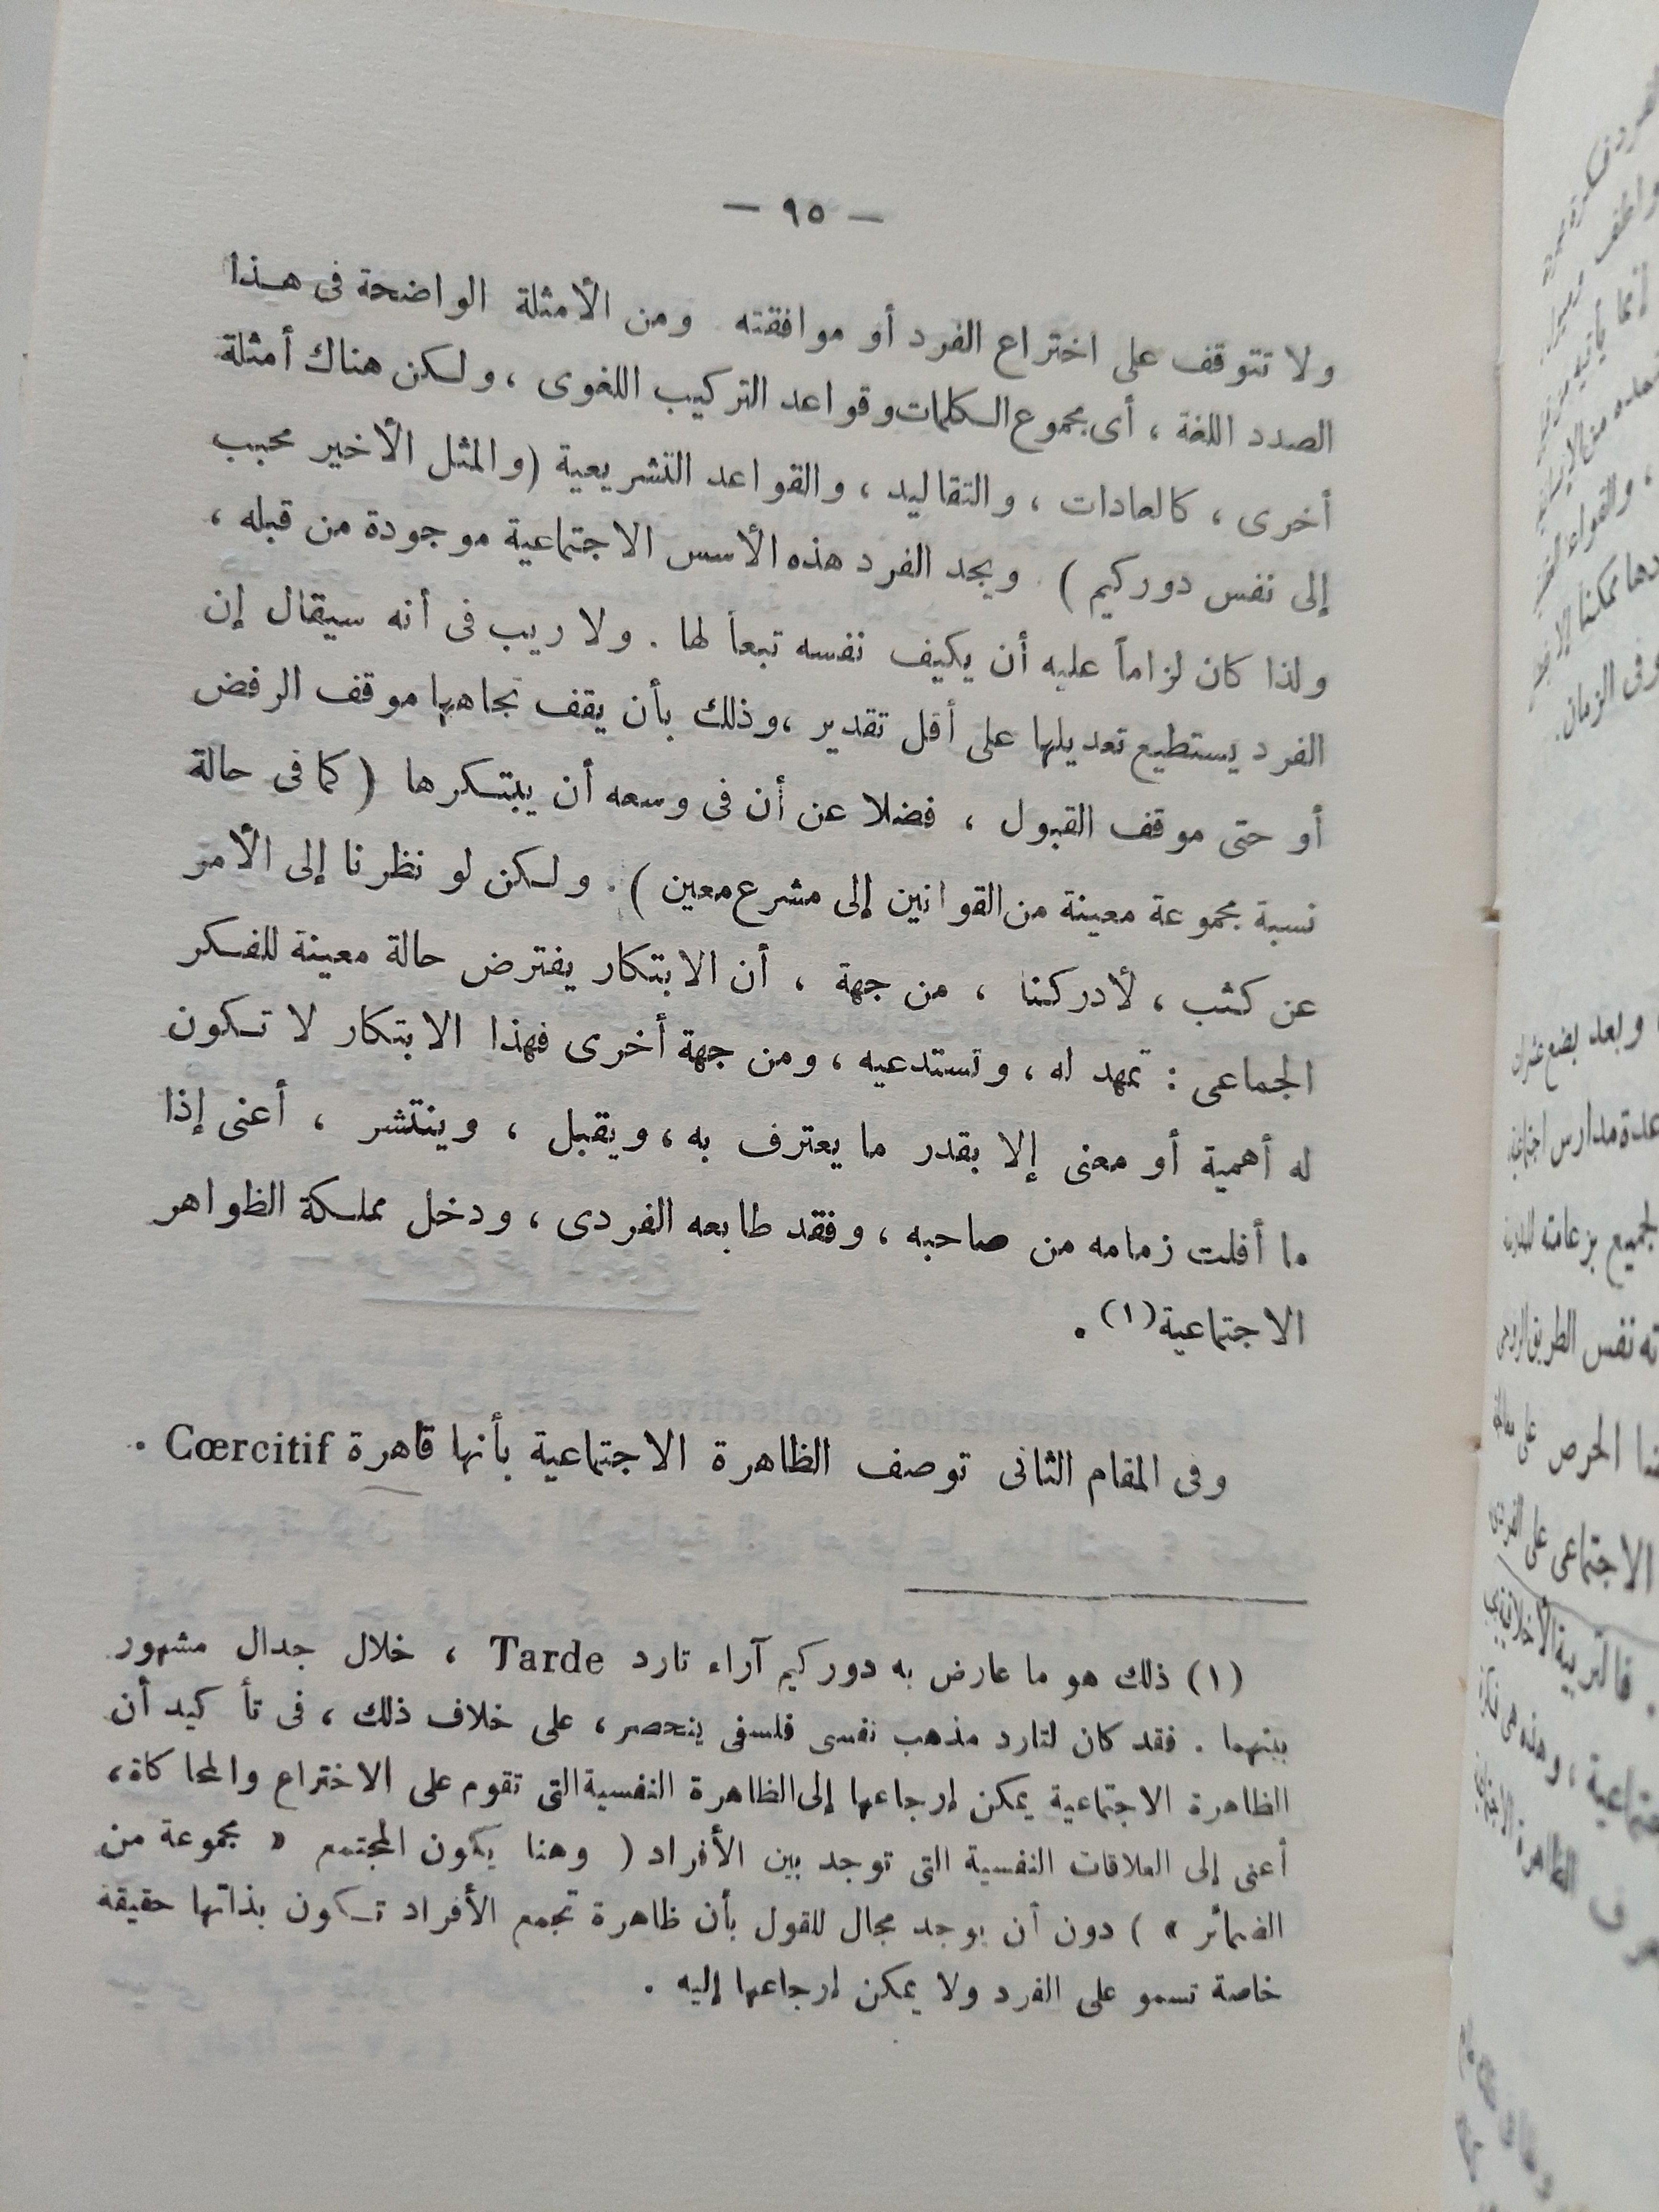 — ٩٥ —
ولا تتوقف على اختراع الفرد أو موافقته ومن الأمثلة الواضحة فى هذا
الصدد اللغة ، أى مجموع الكلمات وقواعد التركيب اللغوى ، ولكن هناك أمثلة
أخرى ، كالعادات ، والتقاليد ، والقواعد التشريعية (والمثل الأخير محبب
إلى نفس دوركيم ) . ويجد الفرد هذه الأسس الاجتماعية موجودة من قبله ،
ولذا كان لزاماً عليه أن يكيف نفسه تبعاً لها . ولا ريب فى أنه سيقال إن
الفرد يستطيع تعديلها على أقل تقدير ، وذلك بأن يقف تجاهها موقف الرفض
أو حتى موقف القبول ، فضلا عن أن فى وسعه أن يبتكرها ( كما فى حالة
نسبة مجموعة معينة من القوانين إلى مشرع معين ) . ولكن لو نظرنا إلى الأمر
عن كثب ، لأدركنا ، من جهة ، أن الابتكار يفترض حالة معينة للفكر
الجماعى : تمهد له ، وتستدعيه ، ومن جهة أخرى فهذا الابتكار لا تكون
له أهمية أو معنى إلا بقدر ما يعترف به ، ويقبل ، وينتشر ، أعنى إذا
ما أفلت زمامه من صاحبه ، وفقد طابعه الفردى ، ودخل مملكة الظواهر
الاجتماعية(١) .
وفى المقام الثانى توصف الظاهرة الاجتماعية بأنها قاهرة Cœrcitif .
(١) ذلك هو ما عارض به دوركيم آراء تارد Tarde ، خلال جدال مشهور
بينهما . فقد كان لتارد مذهب نفسى فلسفى ينحصر ، على خلاف ذلك ، فى تأكيد أن
الظاهرة الاجتماعية يمكن إرجاعها إلى الظاهرة النفسية التى تقوم على الاختراع والمحاكاة ،
أعنى إلى العلاقات النفسية التى توجد بين الأفراد ( وهنا يكون المجتمع « مجموعة من
الضمائر » ) دون أن يوجد مجال للقول بأن ظاهرة تجمع الأفراد تكون بذاتها حقيقة
خاصة تسمو على الفرد ولا يمكن إرجاعها إليه .